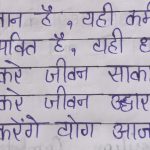 ान है, यही कर्म
क्ति है, यही ध
करे जीवन साक
करे जीवन उद्धार
करेंगे योग आज